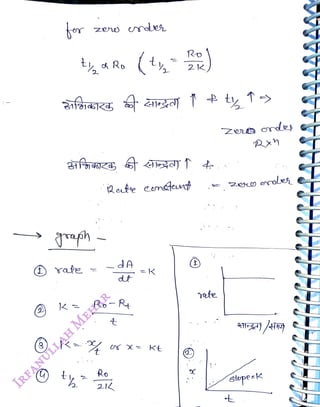 for zero order
t1/2 α R0 ( t1/2 = R0/2K )
अभिकारक की सान्द्रता ↑ & t1/2 ↑ ⇒
zero order
Rxn
अभिकारक की सान्द्रता ↑ &
Rate constant = zero order
→ graph -
① rate = -dA/dt = K
② K = R0 - Rt / t
③ K = x/t or x = Kt
④ t1/2 = R0/2K
①
rate
सान्द्रता /समय
②
x
slope=K
t
IRFANULLAH MEHAR